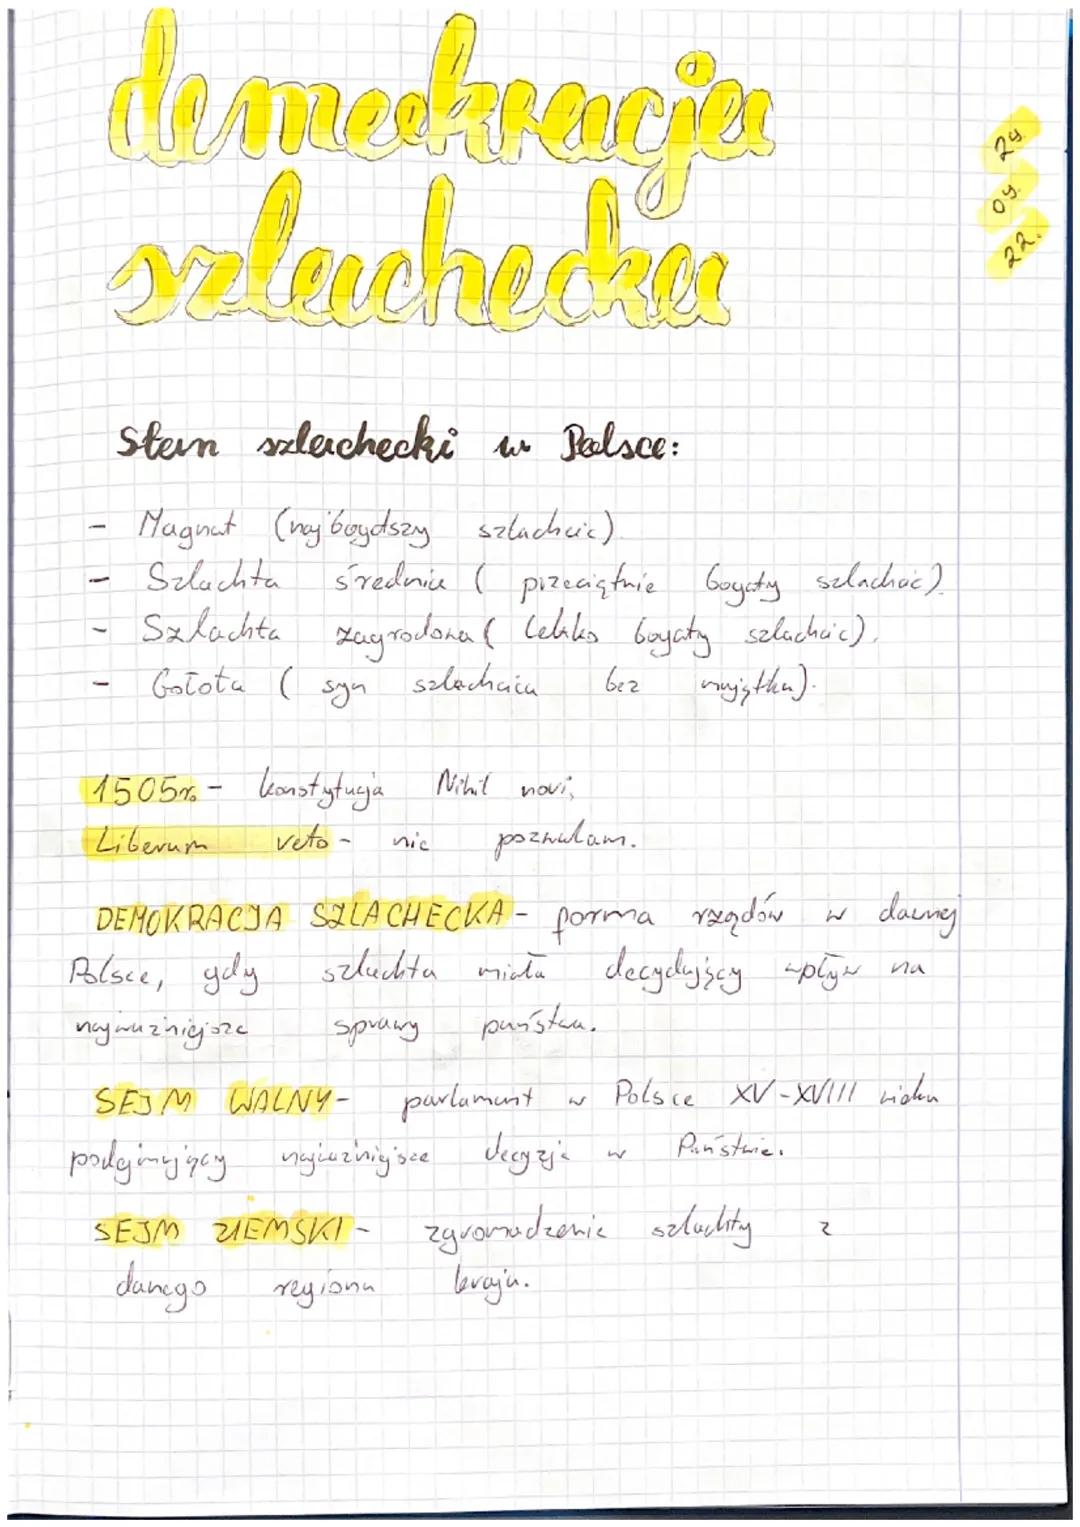 demokracja
29.
09.
22.
szlachecka
Stan szlachecki w Polsce:
- Magnat (najbogdszy szlachcic).
- Szlachta średnia ( przeciętnie bogaty szlachcic).
- Szlachta zagrodowa ( lekko bogaty szlachcic).
- Gołota ( syn szlachcica bez majątku).
1505r. - konstytucja Nihil novi,
Liberum veto - nie pozwalam.
DEMOKRACJA SZLACHECKA - forma rządów w dawnej
Polsce, gdy szlachta miała decydujący wpływ na
najważniejsze sprawy państwa.
SEJM WALNY - parlament w Polsce XV-XVIII wieku
podejmujący najważniejsze decyzje w Państwie.
SEJM ZIEMSKI - zgromadzenie szlachty z
danego regionu kraju.